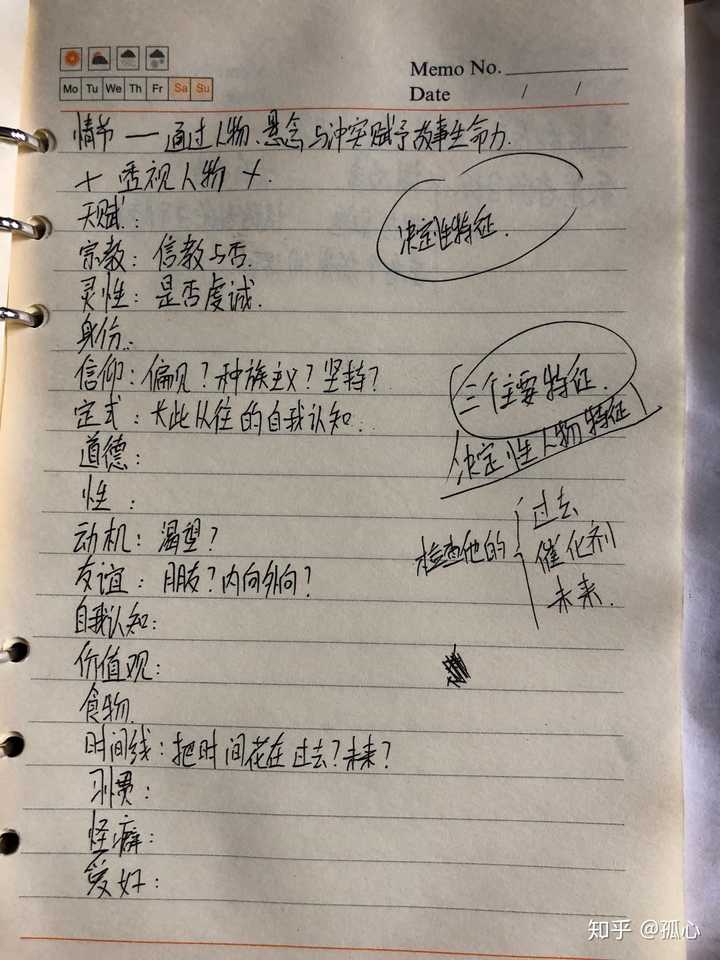 Memo No.
Mo Tu We Th Fr Sa Su
Date / /
情节 — 通过人物、悬念与冲突赋予故事生命力.
+ 透视人物 +.
天赋:
决定性特征.
宗教: 信教与否.
灵性: 是否虔诚.
身份:
信仰: 偏见? 种族主义? 坚持?
三个主要特征.
定式: 长此以往的自我认知.
决定性人物特征
道德:
性:
动机: 渴望?
检查他的
过去
催化剂
未来.
友谊: 朋友? 内向外向?
自我认知:
价值观:
食物.
时间线: 把时间花在过去? 未来?
习惯:
怪癖:
爱好:
知乎 @孤心